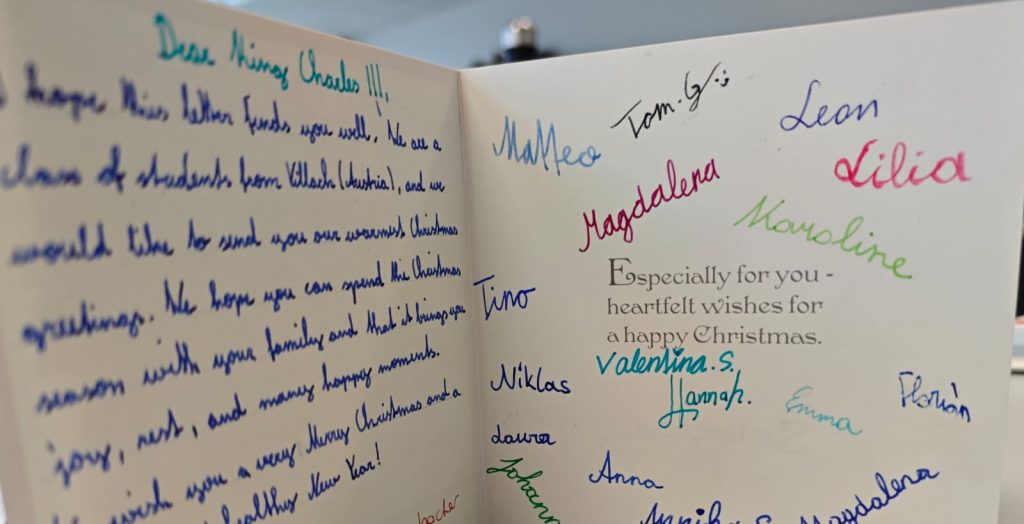 Dear King Charles III,
hope this letter finds you well. We are a
class of students from Villach (Austria), and we
would like to send you our warmest Christmas
greetings. We hope you can spend the Christmas
season with your family and that it brings you
joy, rest, and many happy moments.
wish you a very Merry Christmas and a
healthy New Year!
Matteo
Tom. G
Leon
Magdalena
Lilia
Karoline
Especially for you -
heartfelt wishes for
a happy Christmas.
Tino
Valentina.S.
Niklas
Hannah.
Emma
Florian
Laura
Anna
Johann
Annika S
Magdalena